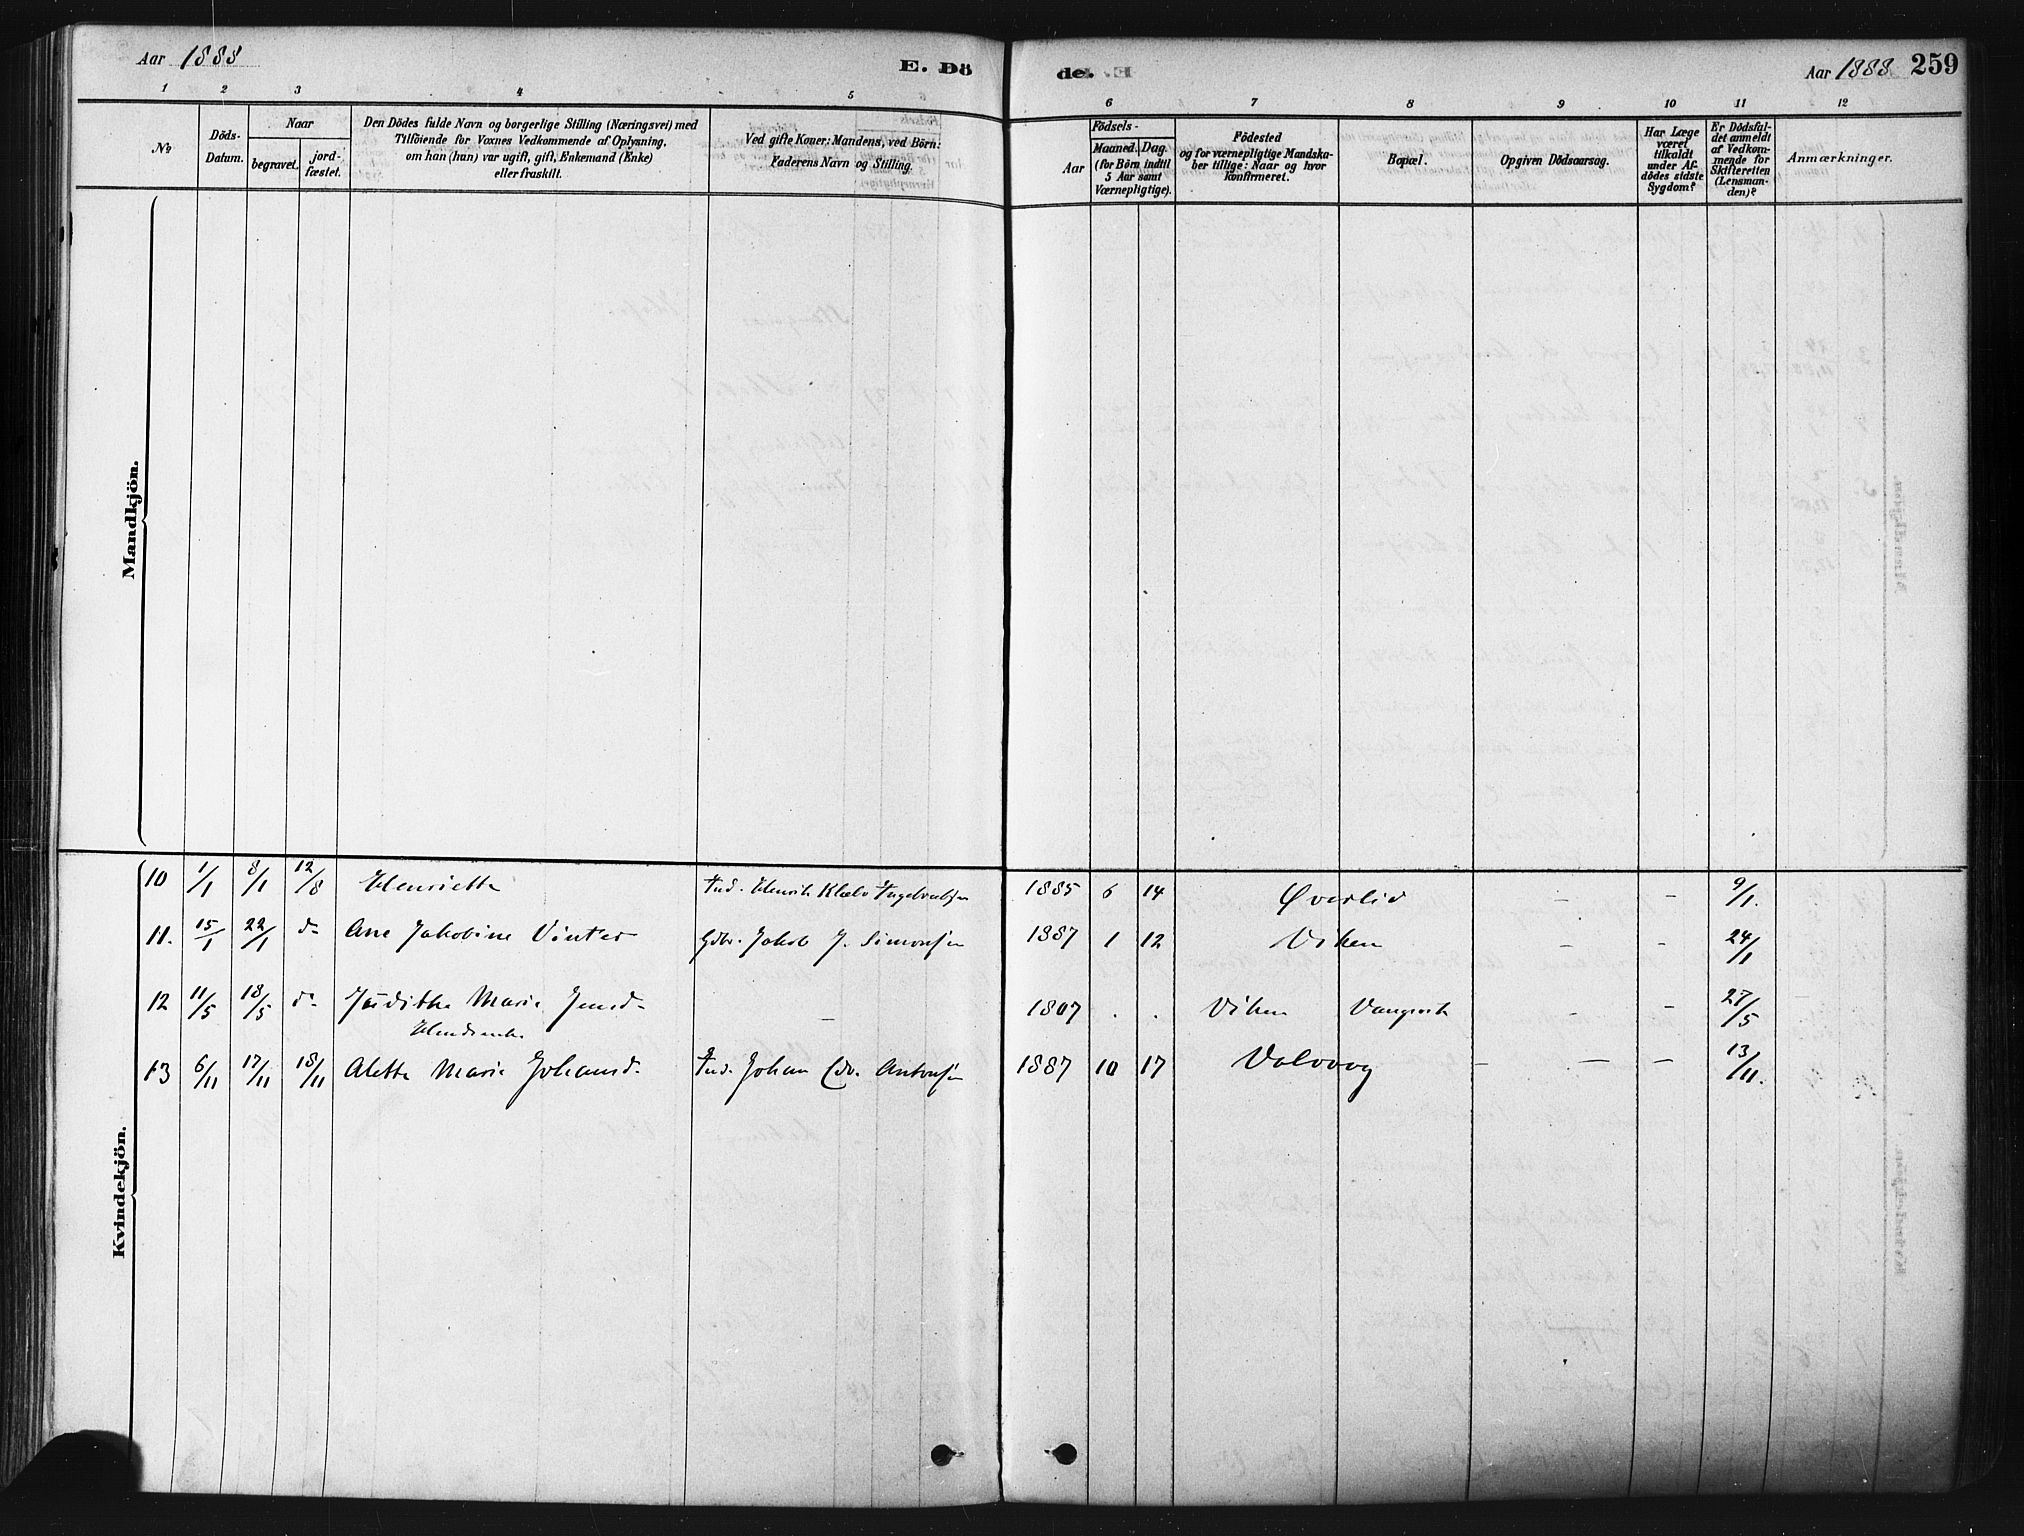 Aar 1888
E. Dö
de.
Aar 1888
259
1 2 3 4 5 6 7 8 9 10 11 12
No
Döds-
Datum.
Naar
begravet.
jord-
fæstet.
Den Dödes fulde Navn og borgerlige Stilling (Næringsvei) med
Tilföiende for Voxnes Vedkommende af Oplysning,
om han (hun) var ugift, gift, Enkemand (Enke)
eller fraskilt.
Ved gifte Koner: Mandens, ved Börn:
Faderens Navn og Stilling.
Aar
Födsels-
Maaned. Dag.
(for Börn indtil
5 Aar samt
Værnepligtige).
Födested
og for værnepligtige Mandska-
ber tillige: Naar og hvor
konfirmeret.
Bopæl.
Opgiven Dödsaarsag.
Har Læge
været
tilkaldt
under Af-
dödes sidste
Sygdom?
Er Dödsfal-
det anmeldt
af Vedkom-
mende for
Skifteretten
(Lensman-
den)?
Anmærkninger.
Mandkjön.
Kvindekjön.
10 1/1 8/1 12/8 Henriette Ind. Henrik Klæbo Ingebrigtsen 1885 6 14 Øverlid - - 9/1.
11. 15/1 22/1 do Ane Jakobine Vinter Gdbr. Jakob J. Simonsen 1887 1 12 Viken - - 24/1
12 11/5 18/5 do Juditha Marie Jensd. - 1807 . . Viken Vangsvik - - 27/5
13 6/11 17/11 18/11 Alette Marie Johansd. Ind. Johan Edv. Antonsen 1887 10 17 Valvaag - - - 13/11.